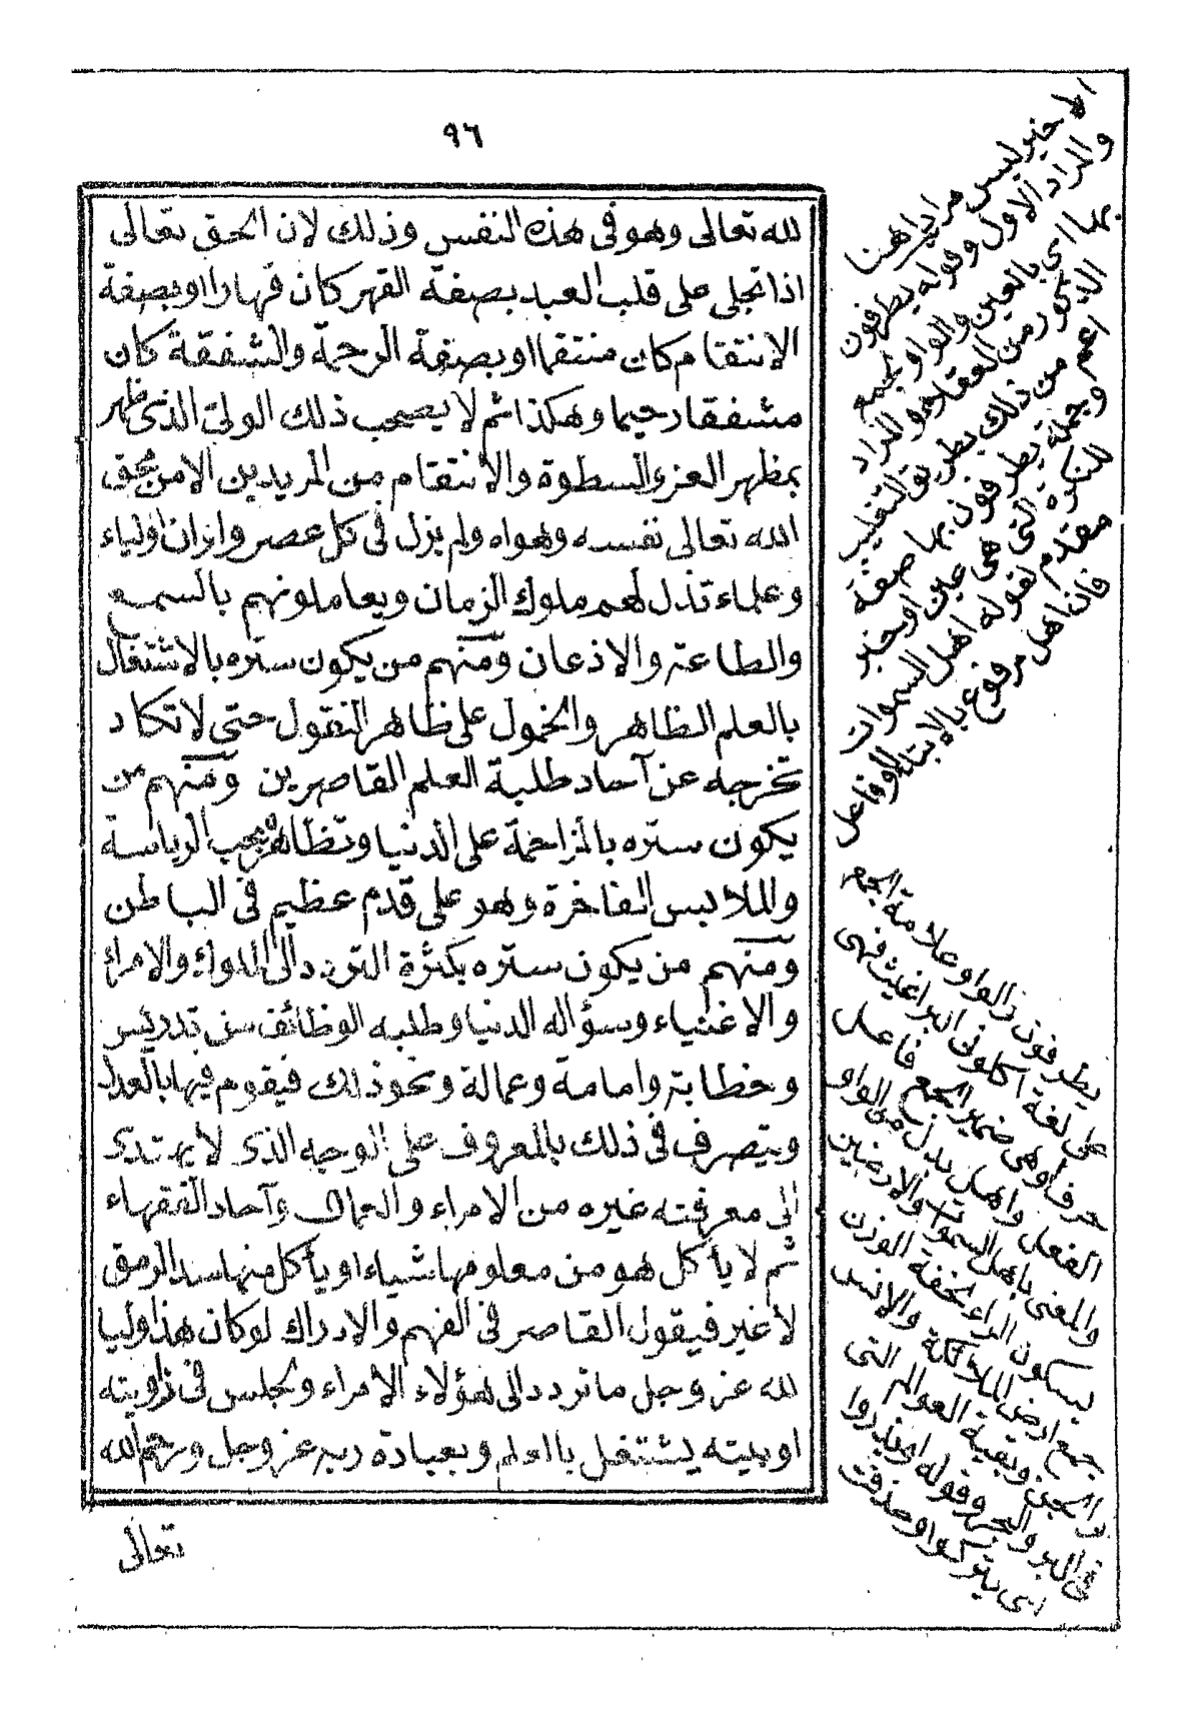 ٩٦
لله تعالى وهو في هذه النفس وذلك لان الحق تعالى
اذا تجلى على قلب العبد بصفة القهر كان قهارا او بصفة
الانتقام كان منتقما او بصفة الرحمة والشفقة كان
مشفقا رحيما وهكذا ثم لا يصحب ذلك الولي الذي ظهر
بمظهر العز والسطوة والانتقام من المريدين الا من محق
الله تعالى نفسه وهواه ولم يزل في كل عصر واوان اولياء
وعلماء تذل لهم ملوك الزمان ويعاملونهم بالسمع
والطاعة والاذعان ومنهم من يكون ستره بالاشتغال
بالعلم الظاهر والخمول على ظاهر النقول حتى لا تكاد
تخرجه عن آحاد طلبة العلم القاصرين ومنهم من
يكون ستره بالمزاحمة على الدنيا وتظاهره بحب الرياسة
والملابس الفاخرة وهو على قدم عظيم في الباطن
ومنهم من يكون ستره بكثرة التردد الى الملوك والامراء
والاغنياء وسؤاله الدنيا وطلبه الوظائف من تدريس
وخطابة وامامة وعمالة ونحو ذلك فيقوم فيها بالعدل
ويتصرف في ذلك بالمعروف على الوجه الذي لا يهتدى
الى معرفته غيره من الامراء والعمال وآحاد الفقهاء
ثم لا يأكل هو من معلومها شياء او يأكل منها سد الرمق
لا غير فيقول القاصر في الفهم والادراك لو كان هذا وليا
لله عز وجل ما تردد الى هؤلاء الامراء ويجلس في زاويته
او بيته يشتغل بالعلم وبعبادة ربه عز وجل ورحم الله
تعالى
الاخير ليس مرادا هنا
والمراد الاول وقوله يطرفون
بها اى بالعين والواو لجمع
الذكور من العقلاء والمراد
اعم من ذلك بطريق التغليب
وجملة يطرفون بها صفة
للنكرة التى هى عين او خبر
مقدم لقوله اهل السموات
فان اهل مرفوع بالابتداء او فاعل
يطرفون والواو علامة الجمع
على لغة اكلونى البراغيث فهى
حرف او هى ضمير الجمع فاعل
الفعل واهل بدل من الواو
والمعنى باهل السموات والارضين
بسكون الراء لخفة الوزن
جمع ارض الملائكة والانس
والجن وبقية العوالم التى
فى البر والبحر وقوله او يذروا
اى يتركوا وحذفت